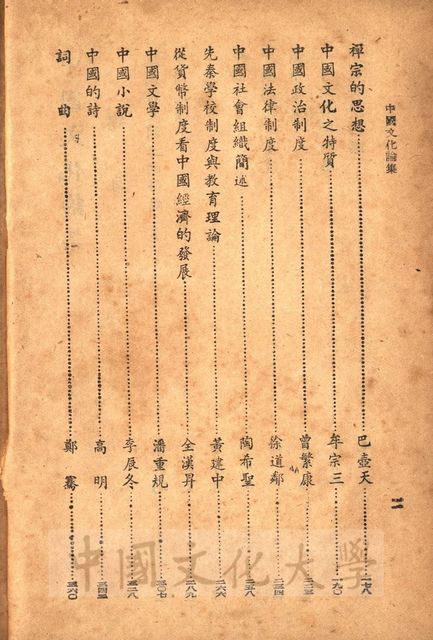 中國文化論集
二
禪宗的思想 巴壺天 一七八
中國文化之特質 牟宗三 一九〇
中國政治制度 曾繁康
中國法律制度 徐道鄰 二三四
中國社會組織簡述 陶希聖 二五八
先秦學校制度與教育理論 黃建中 二六六
從貨幣制度看中國經濟的發展 全漢昇 二八九
中國文學 潘重規 三〇七
中國小說 李辰冬 三二八
中國的詩 高明 三四三
詞曲 鄭騫 三六〇
中國文化大學